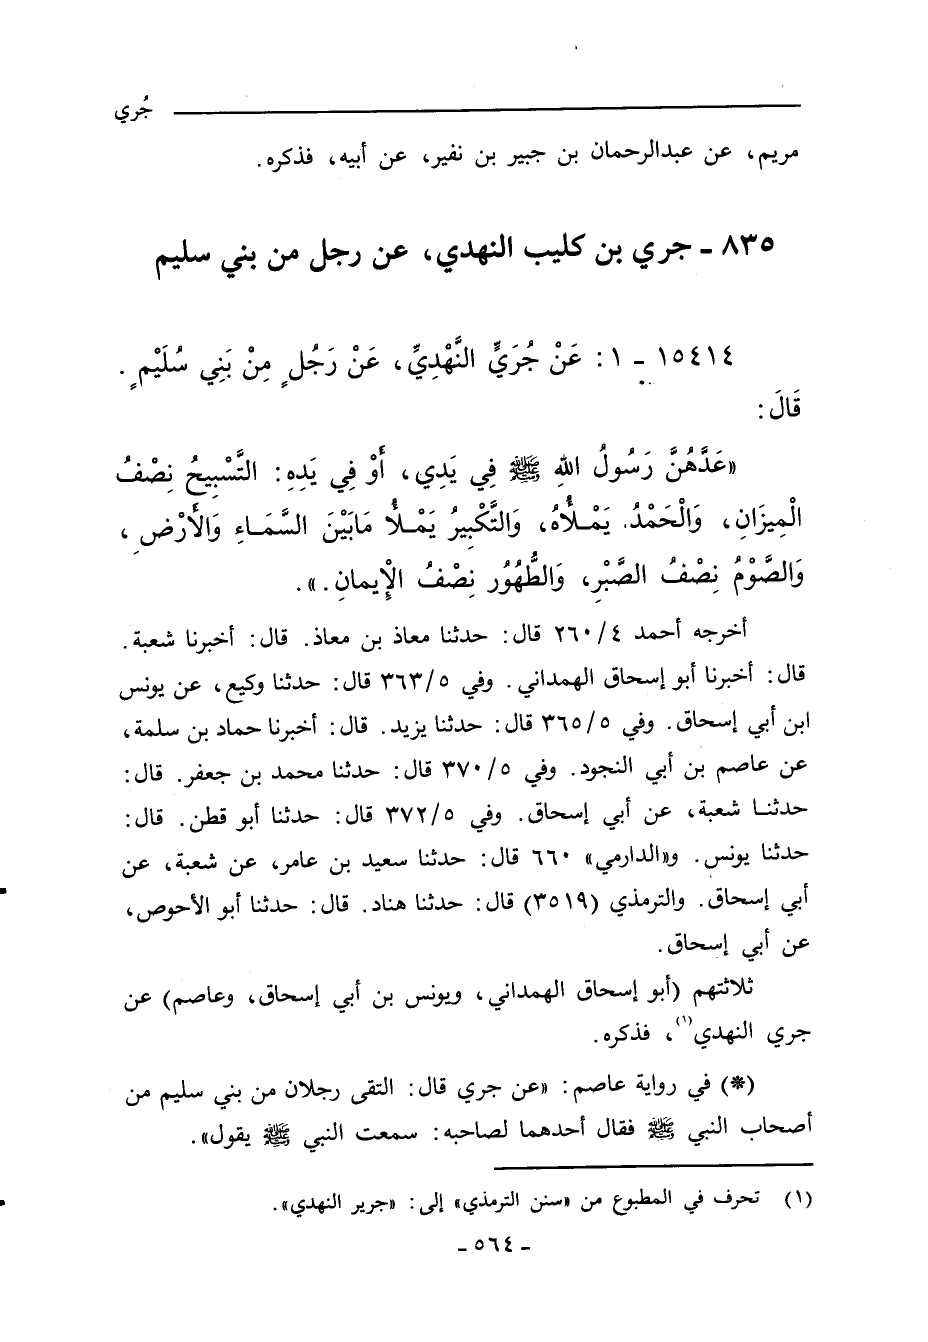 جُري
مريم، عن عبدالرحمان بن جبير بن نفير، عن أبيه، فذكره.
٨٣٥ - جري بن كليب النهدي، عن رجل من بني سليم
١٥٤١٤ - ١: عَنْ جُرَيٍّ النَّهْدِيِّ، عَنْ رَجُلٍ مِنْ بَنِي سُلَيْمٍ.
قَالَ:
«عَدَّهُنَّ رَسُولُ اللهِ ﷺ فِي يَدِي، أَوْ فِي يَدِهِ: التَّسْبِيحُ نِصْفُ
الْمِيزَانِ، وَالْحَمْدُ يَمْلأُهُ، وَالتَّكْبِيرُ يَمْلأُ مَابَيْنَ السَّمَاءِ وَالأَرْضِ،
وَالصَّوْمُ نِصْفُ الصَّبْرِ، وَالطُّهُور نِصْفُ الإِيمانِ.».
أخرجه أحمد ٢٦٠/٤ قال: حدثنا معاذ بن معاذ. قال: أخبرنا شعبة.
قال: أخبرنا أبو إسحاق الهمداني. وفي ٣٦٣/٥ قال: حدثنا وكيع، عن يونس
ابن أبي إسحاق. وفي ٣٦٥/٥ قال: حدثنا يزيد. قال: أخبرنا حماد بن سلمة،
عن عاصم بن أبي النجود. وفي ٣٧٠/٥ قال: حدثنا محمد بن جعفر. قال:
حدثنا شعبة، عن أبي إسحاق. وفي ٣٧٢/٥ قال: حدثنا أبو قطن. قال:
حدثنا يونس. و«الدارمي» ٦٦٠ قال: حدثنا سعيد بن عامر، عن شعبة، عن
أبي إسحاق. والترمذي (٣٥١٩) قال: حدثنا هناد. قال: حدثنا أبو الأحوص،
عن أبي إسحاق.
ثلاثتهم (أبو إسحاق الهمداني، ويونس بن أبي إسحاق، وعاصم) عن
جري النهدي(١)، فذكره.
(*) في رواية عاصم: «عن جري قال: التقى رجلان من بني سليم من
أصحاب النبي ﷺ فقال أحدهما لصاحبه: سمعت النبي ﷺ يقول».
(١) تحرف في المطبوع من «سنن الترمذي» إلى: «جرير النهدي».
- ٥٦٤ -